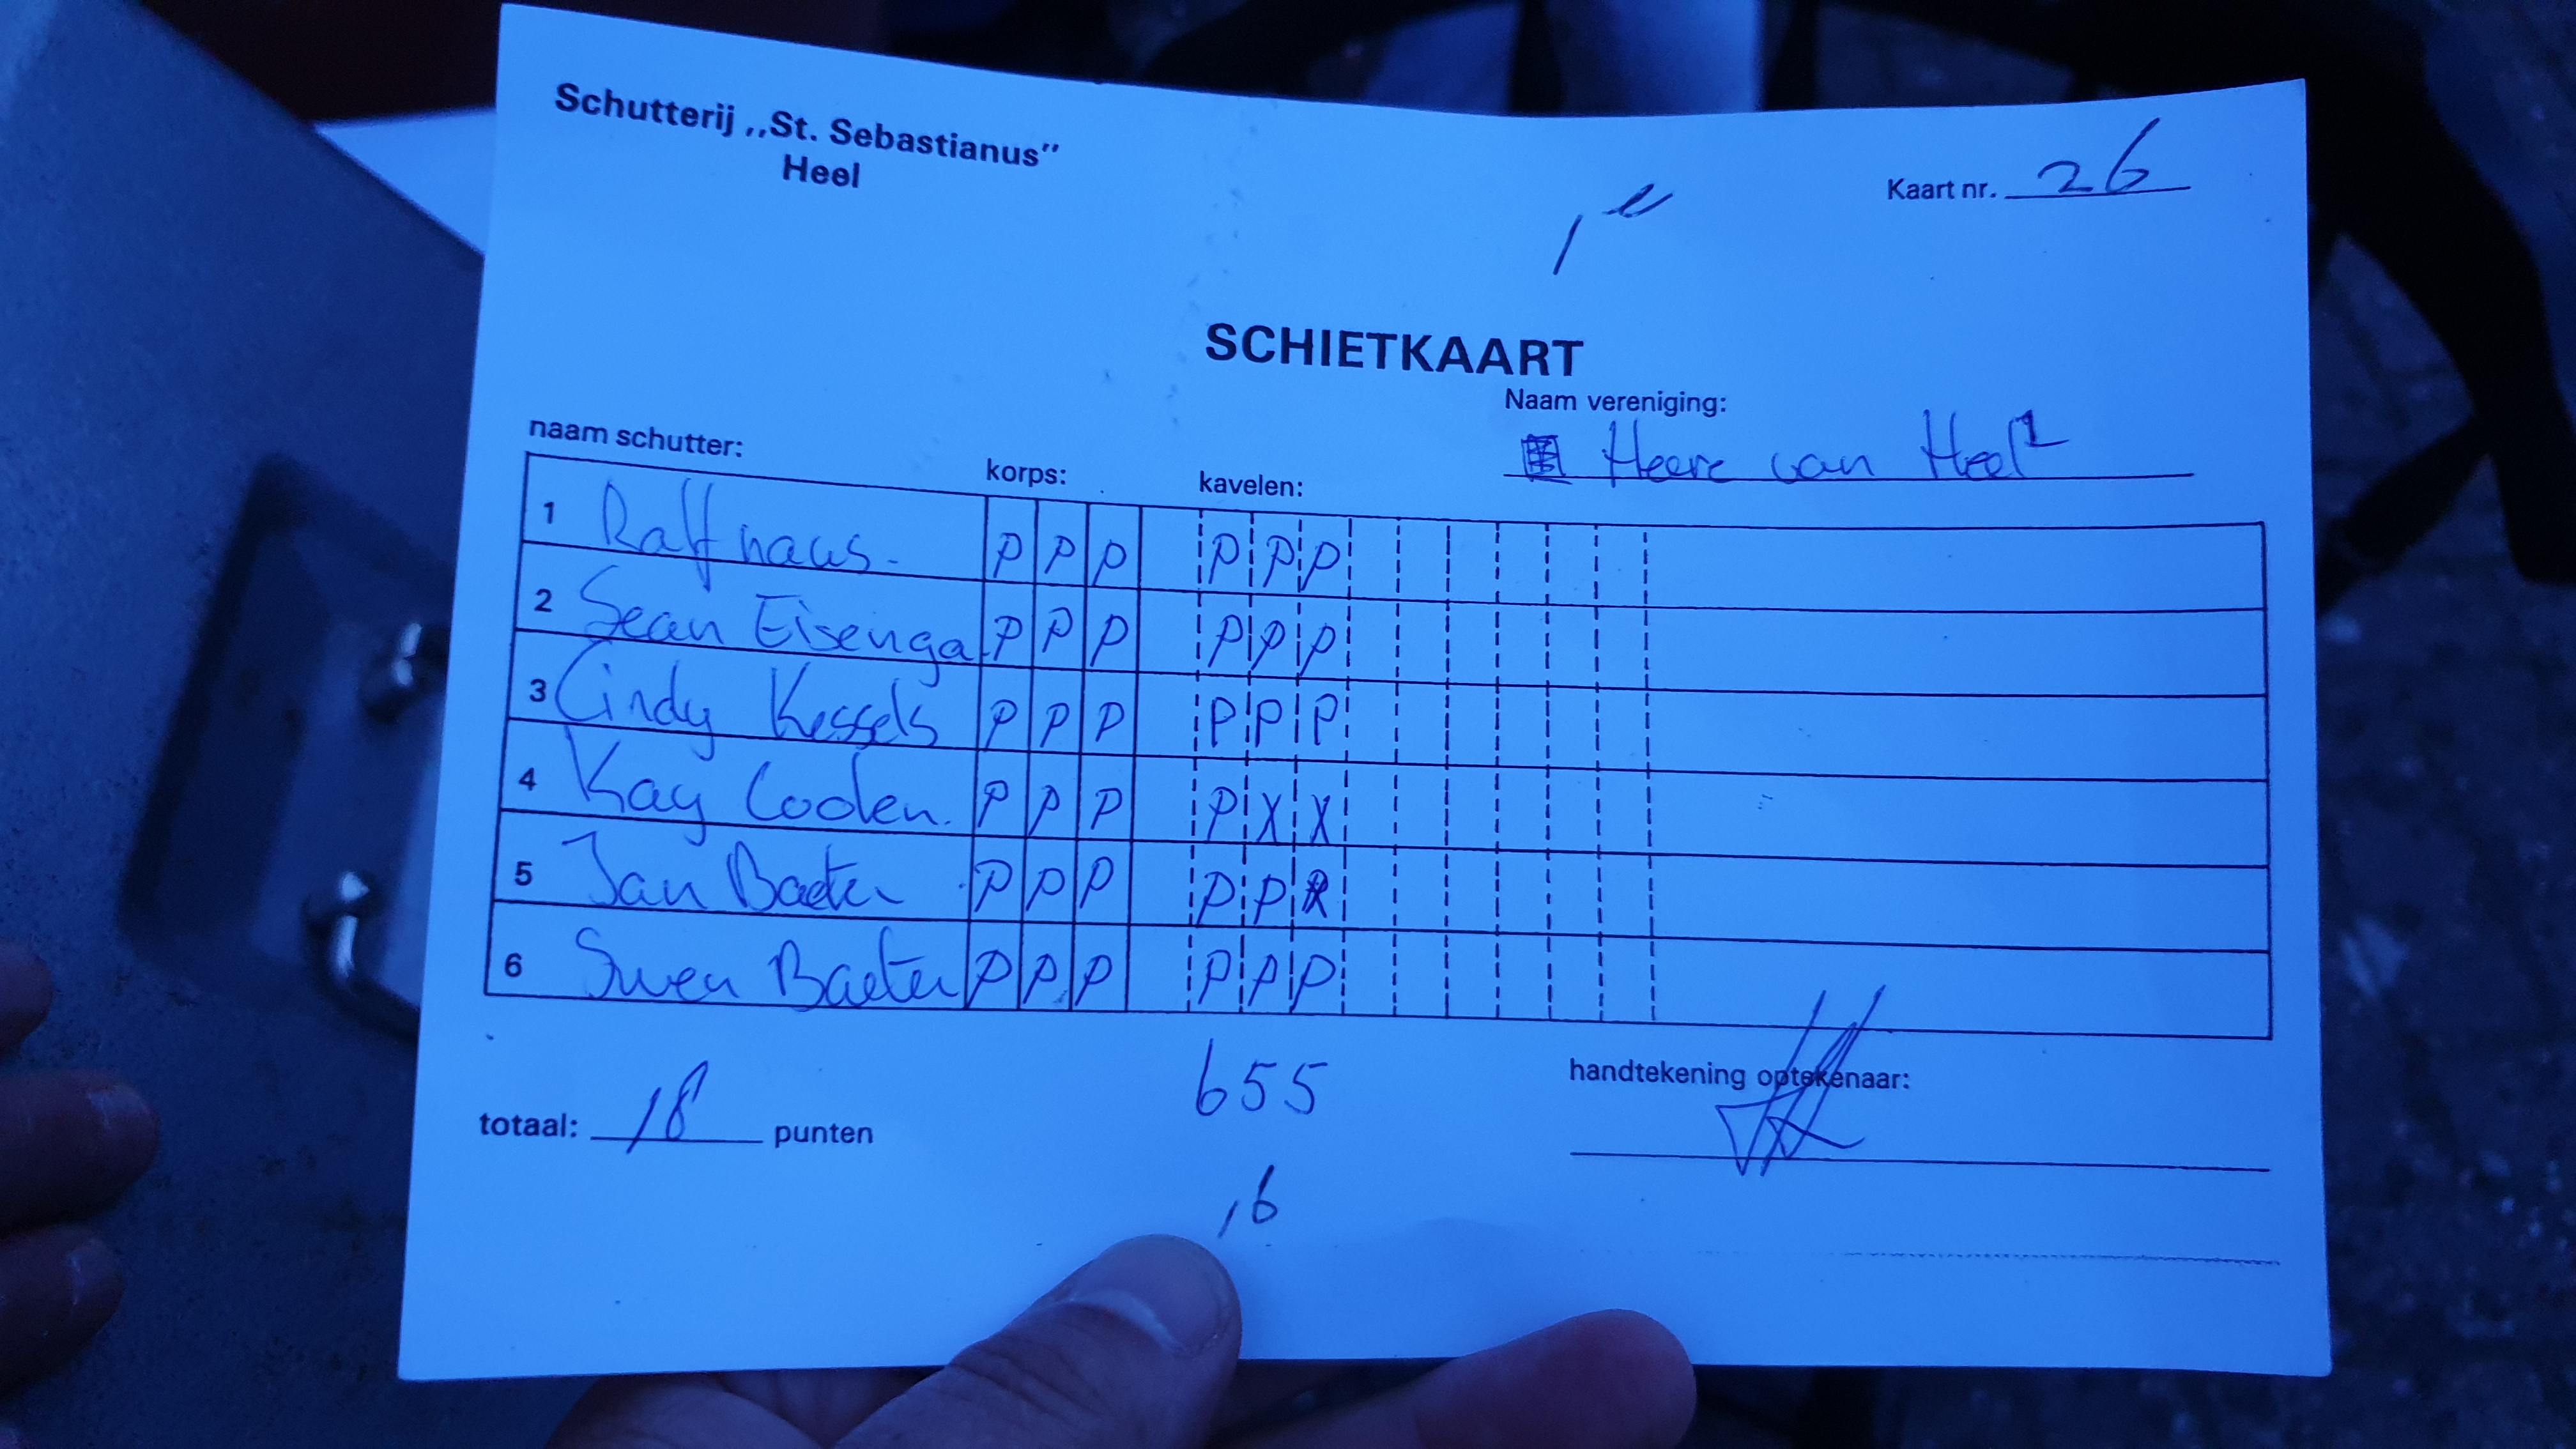 Schutterij ,,St. Sebastianus"
Heel
Kaart nr. 26
1e
SCHIETKAART
Naam vereniging:
Heere van Heel 1
naam schutter:
korps:
kavelen:
1 Ralf haus. P P P P P P
2 Sean Eisenga P P P P P P
3 Cindy Kessels P P P P P P
4 Kay Coolen. P P P P X X
5 Jan Baeten P P P P P
6 Swen Baeten P P P P P P
655
handtekening optekenaar:
totaal: 18 punten
16